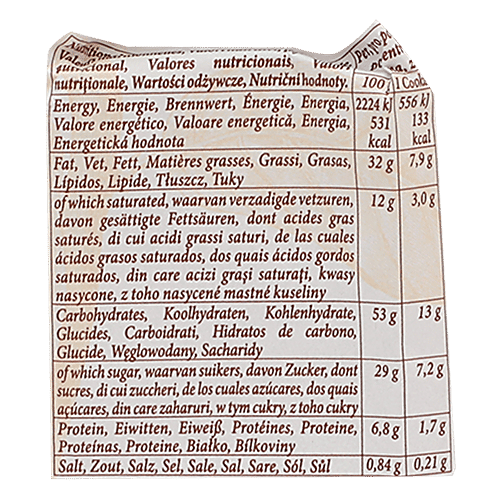 Valores nutricionais,
nutritionale, Wartości odżywcze, Nutričnì hodnoty. 100 g 1 Cookie
Energy, Energie, Brennwert, Énergie, Energia, 2224 kJ 556 kJ
Valore energético, Valoare energetică, Energia, 531 133
Energetická hodnota kcal kcal
Fat, Vet, Fett, Matières grasses, Grassi, Grasas, 32 g 7,9 g
Lípidos, Lipide, Tłuszcz, Tuky
of which saturated, waarvan verzadigde vetzuren, 12 g 3,0 g
davon gesättigte Fettsäuren, dont acides gras
saturés, di cui acidi grassi saturi, de las cuales
ácidos grasos saturados, dos quais ácidos gordos
saturados, din care acizi grași saturați, kwasy
nasycone, z toho nasycené mastné kuseliny
Carbohydrates, Koolhydraten, Kohlenhydrate, 53 g 13 g
Glucides, Carboidrati, Hidratos de carbono,
Glucide, Węglowodany, Sacharidy
of which sugar, waarvan suikers, davon Zucker, dont 29 g 7,2 g
sucres, di cui zuccheri, de los cuales azúcares, dos quais
açúcares, din care zaharuri, w tym cukry, z toho cukry
Protein, Eiwitten, Eiweiß, Protéines, Proteine, 6,8 g 1,7 g
Proteínas, Proteine, Białko, Bílkoviny
Salt, Zout, Salz, Sel, Sale, Sal, Sare, Sól, Sůl 0,84 g 0,21 g